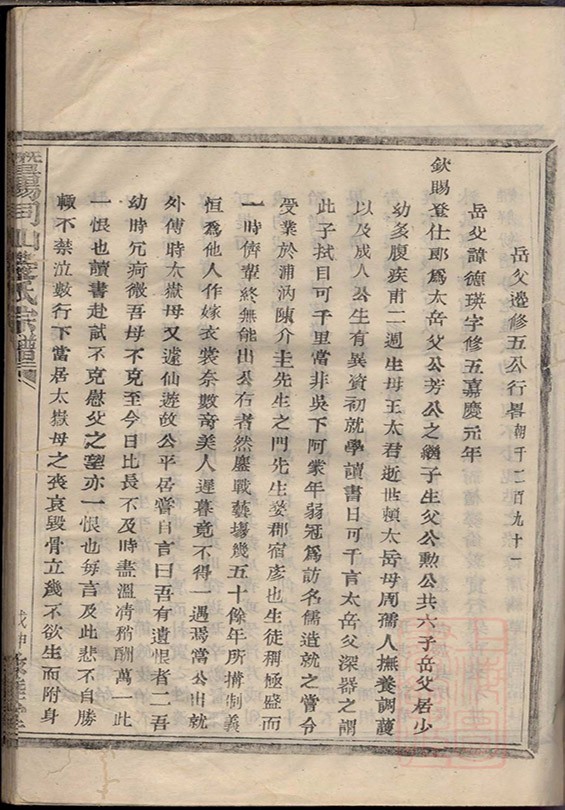 岳父邊修五公行畧 朝千二百九十一
岳父諱德瑛字修五嘉慶元年
欽賜登仕郎為太岳父公芳公之繼子生父公勲公共六子岳父居少
幼多腹疾甫二週生母王太君逝世頼太岳母周孺人撫養調護
以及成人公生有異資初就學讀書日可千言太岳父深器之謂
此子拭目可千里當非吳下阿蒙年弱冠為訪名儒造就之嘗令
受業於浦汭陳介圭先生之門先生婺郡宿彥也生徒稱極盛而
一時儕輩終無能出公右者然鏖戰藝塲幾五十餘年所搆制義
恒為他人作嫁衣裳奈數竒美人遲暮竟不得一遇焉當公出就
外傅時太嶽母又遽仙遊故公平居嘗自言曰吾有遺恨者二吾
幼時冗痾微吾母不克至今日比長不及時盡溫凊稍酬萬一此
一恨也讀書赴試不克慰父之望亦一恨也每言及此悲不自勝
輙不禁泣數行下當居太嶽母之喪哀毀骨立幾不欲生而附身
暨陽同山邊氏宗譜
戊申